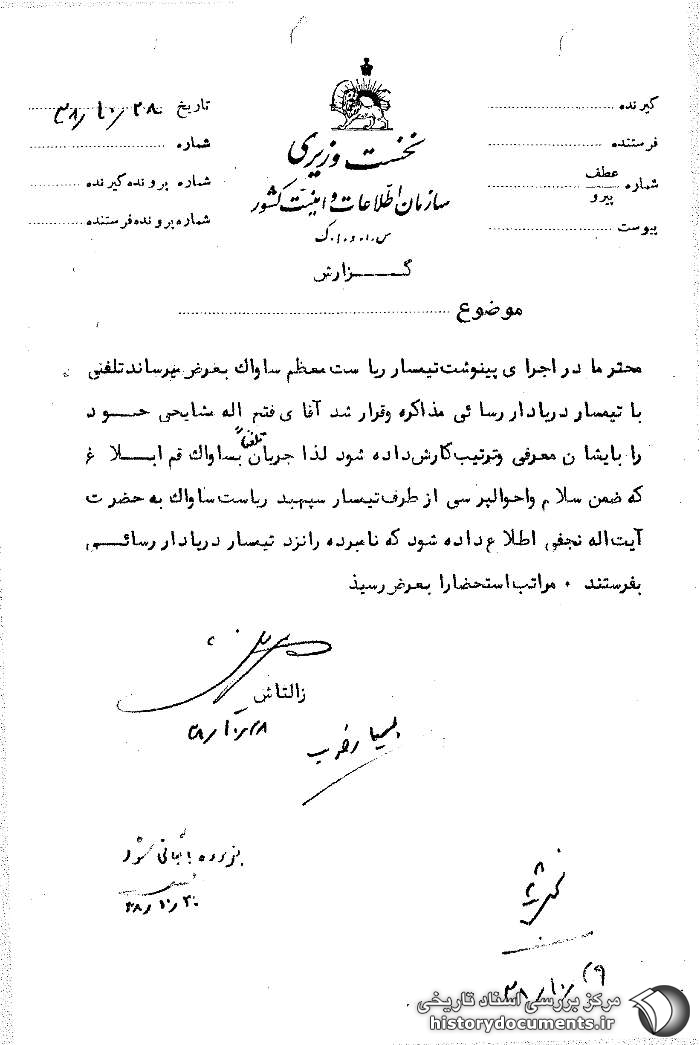 گیرنده
فرستنده
شماره عطف
پیرو
پیوست
نخست وزیری
سازمان اطلاعات و امنیت کشور
س.ا.و.ا.ک
تاریخ ۳۸/۱۰/۲۸
شماره
شماره پرونده گیرنده
شماره پرونده فرستنده
گــــزارش
موضوع
محترما در اجرای پینوشت تیمسار ریاست معظم ساواک بعرض میرساند تلفنی
با تیمسار دریادار رسائی مذاکره وقرار شد آقای فتح اله مشایحی خود
را بایشان معرفی وترتیب کارش داده شود لذا جریان تلفناً بساواک قم ابلاغ
که ضمن سلام واحوالپرسی از طرف تیمسار سپهبد ریاست ساواک به حضرت
آیت اله نجفی اطلاع داده شود که نامبرده را نزد تیمسار دریادار رسائی
بفرستند ۰ مراتب استحضارا بعرض رسید
زالتاش
۳۸/۱۰/۲۸
بسیار خوب
پرونده بایگانی شود
۳۸/۱۰/۳۰
۳۸/۱۰/۲۹
مرکز بررسی اسناد تاریخی
historydocuments.ir